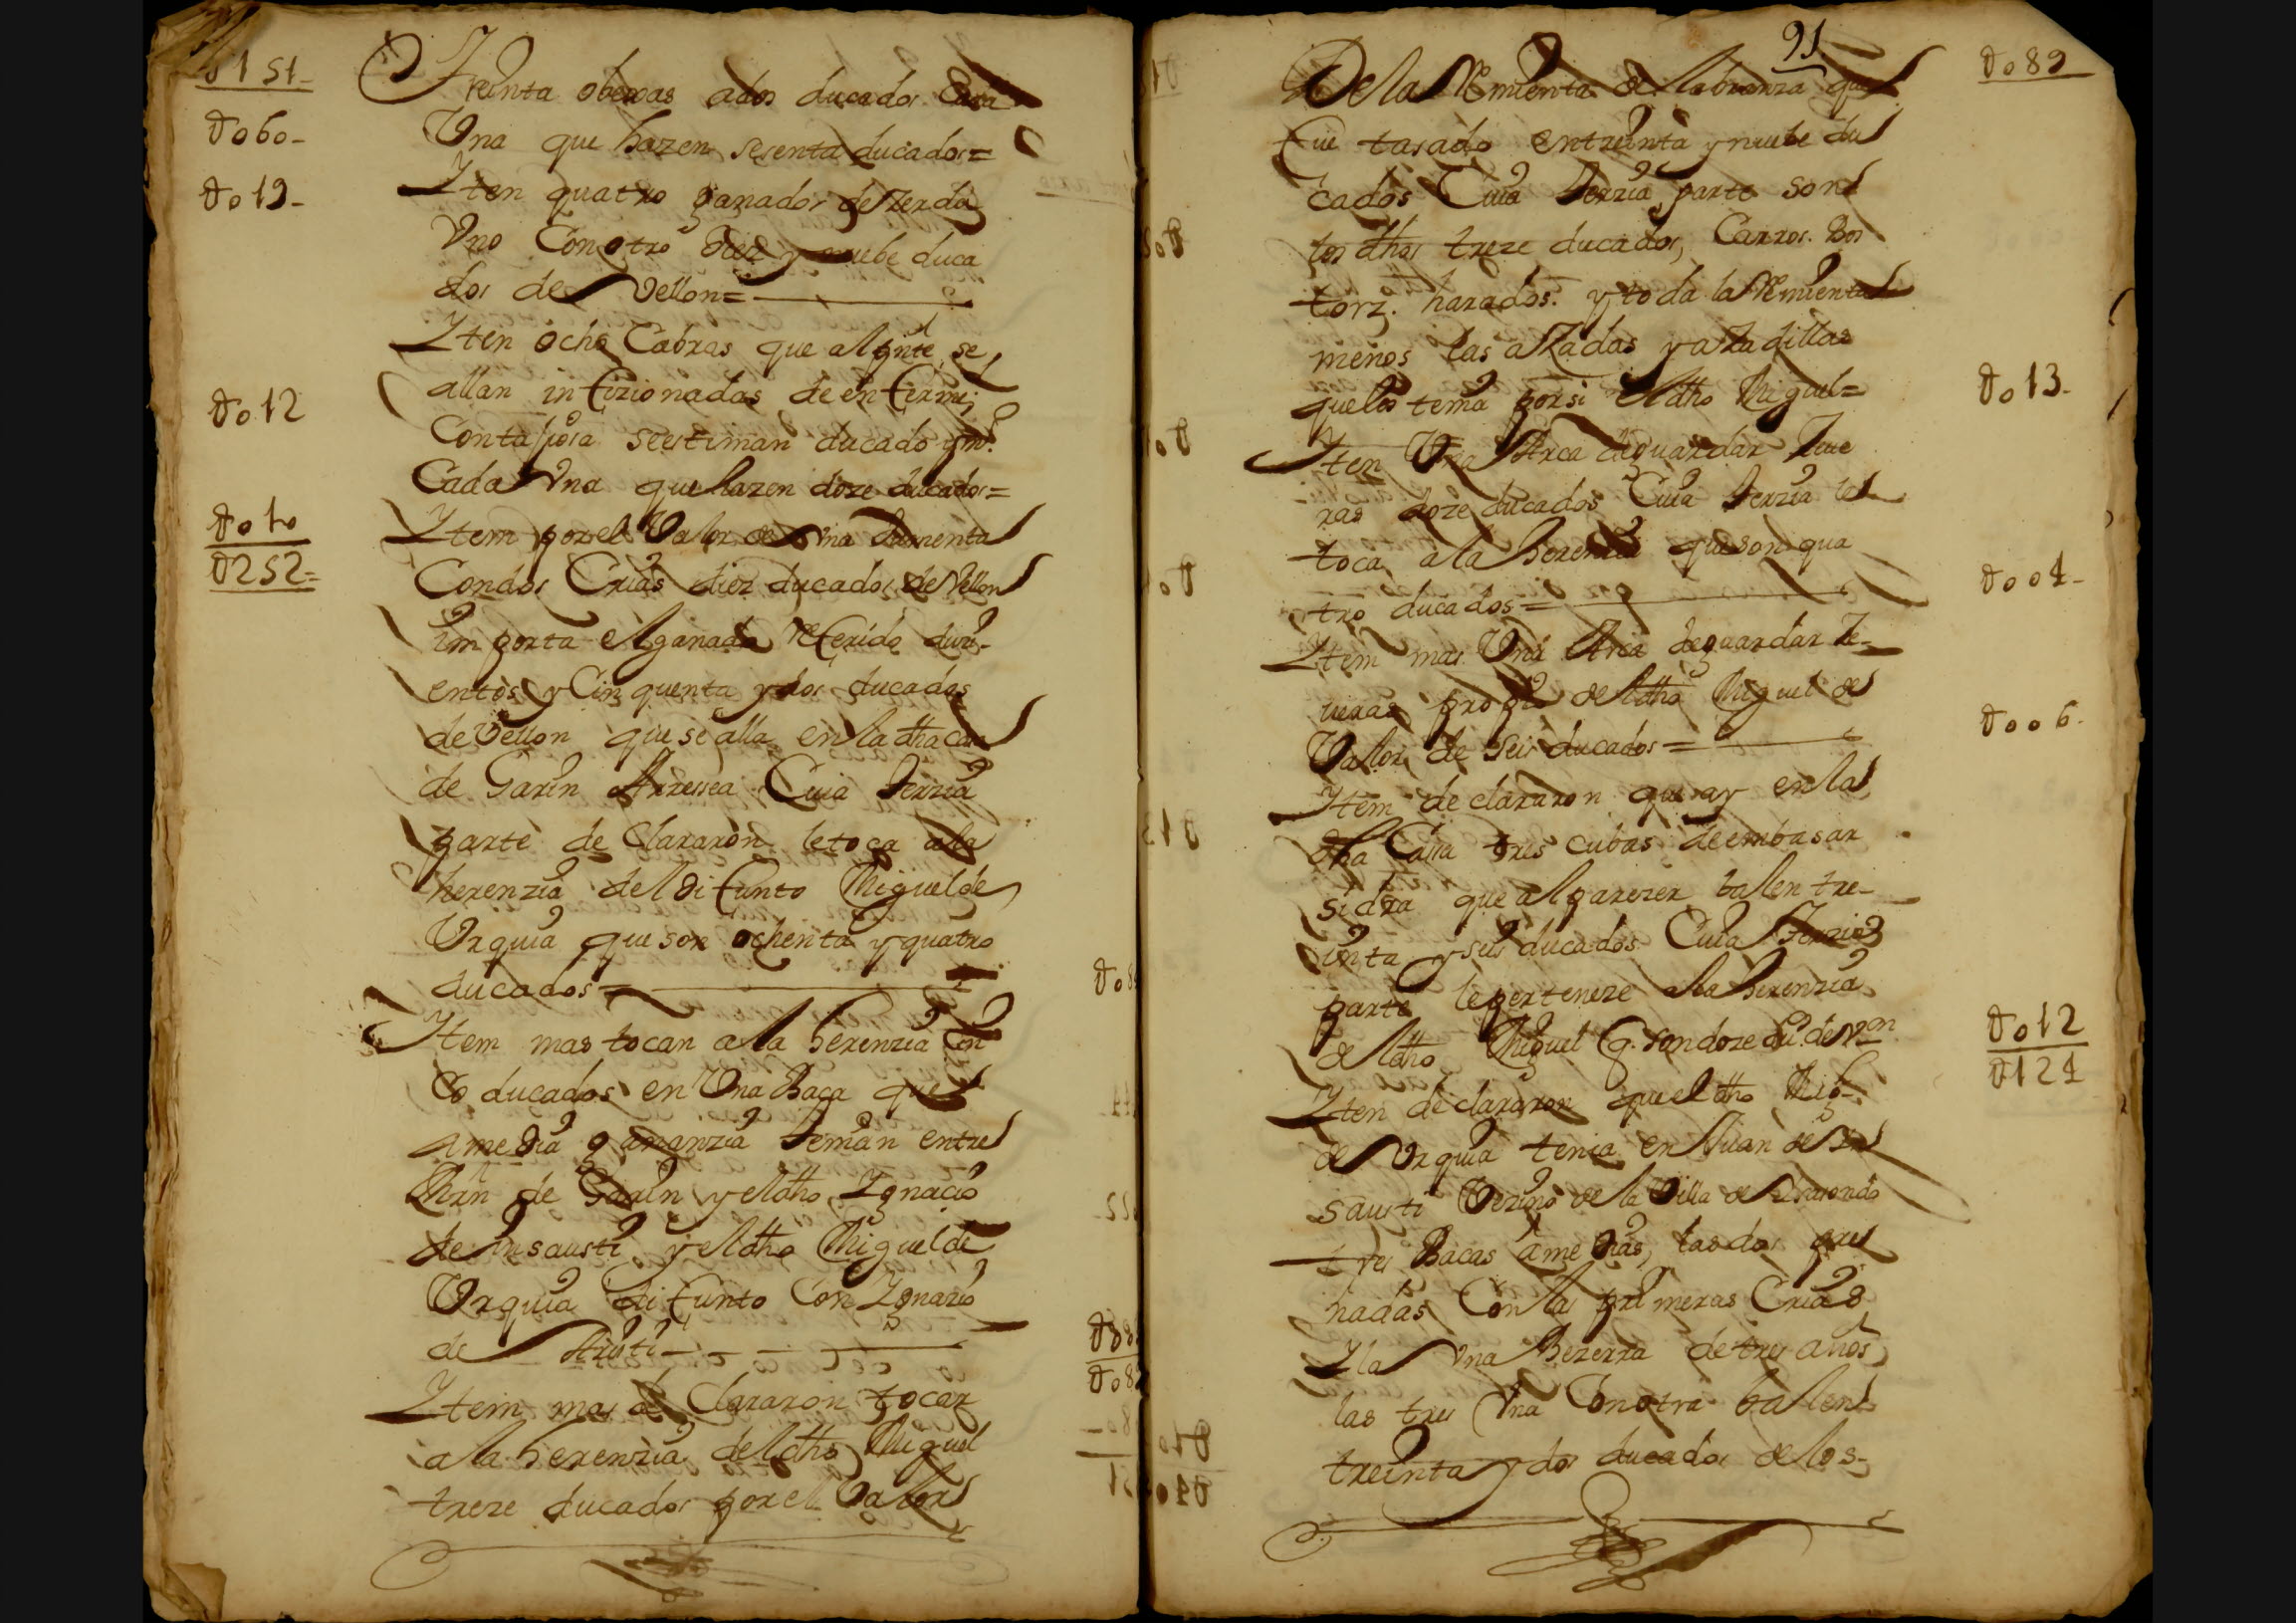 0151-
Treinta obexas ados ducados Cada
Vna que hazen sesenta ducados=
U060-
Iten quatro ganados de zerda
U019-
Vno Con otro diez y nuebe duca
dos de Vellon=
Iten ocho Cabras que al pnte se
allan infizionadas de enferme
Contajiosa seestiman ducado y mº
U012
Cada Vna que hazen doze ducados=
Item por el Valor de Vna Jumenta
U010
Condos Crias diez ducados de Vellon
U252=
importa el ganado referido duci-
entos y Cinquenta y dos ducados
de Vellon que se alla en la dha cassa
de Garin Arressea Cuia terzia
parte declararon le toca ala
herenzia del difunto Miguel de
Urquia que son ochenta y quatro
ducados=
U08
Item mas tocan ala herenzia Cin
Co ducados en Vna Baca que
amedia gananzia tenian entre
Mrn de Garin y el dho Ignacio
de Insausti y el dho Miguel de
Urquia difunto Con Ignazio
de
Item mas declararon tocar
U08
a la herenzia del dho Miguel
treze ducados por el Valor
91
De la Remienta de labranza que
U089
fue tasado entreinta y nuebe du
cados Cuia terzia parte son
los dhos treze ducados, Carros. Bos
torz. harados. y toda la Remienta
menos las aZadas y aZadillas
quelos tenia porsi el dho Miguel=
U013-
Iten Vna Arca deguardar Zeue
ras doze ducados Cuia terzia le
toca a la herenzia queson qua
tro ducados=
U004-
Item mas Vna Arca deguardar Ze-
ueras propia del dho Miguel de
Vallor de seis ducados=
U006-
Item declararon que ay en la
dha Cassa tres cubas de embasar
sidra que al parezer ballen tre-
inta y seis ducados Cuia Terzia
parte le perteneze a la herenzia
del dho Miguel q. son doze du.s de Von
U012
U124
Iten declararon que el dho Migl
de Urquia tenia en Juan de In
sausti Vezino de la Villa de
tres Bacas amedias, las dos pre
nadas Con las primeras Crias
Y la Vna Bezerra de tres años
las tres Vna Con otra ballen
treinta y dos ducados de los-